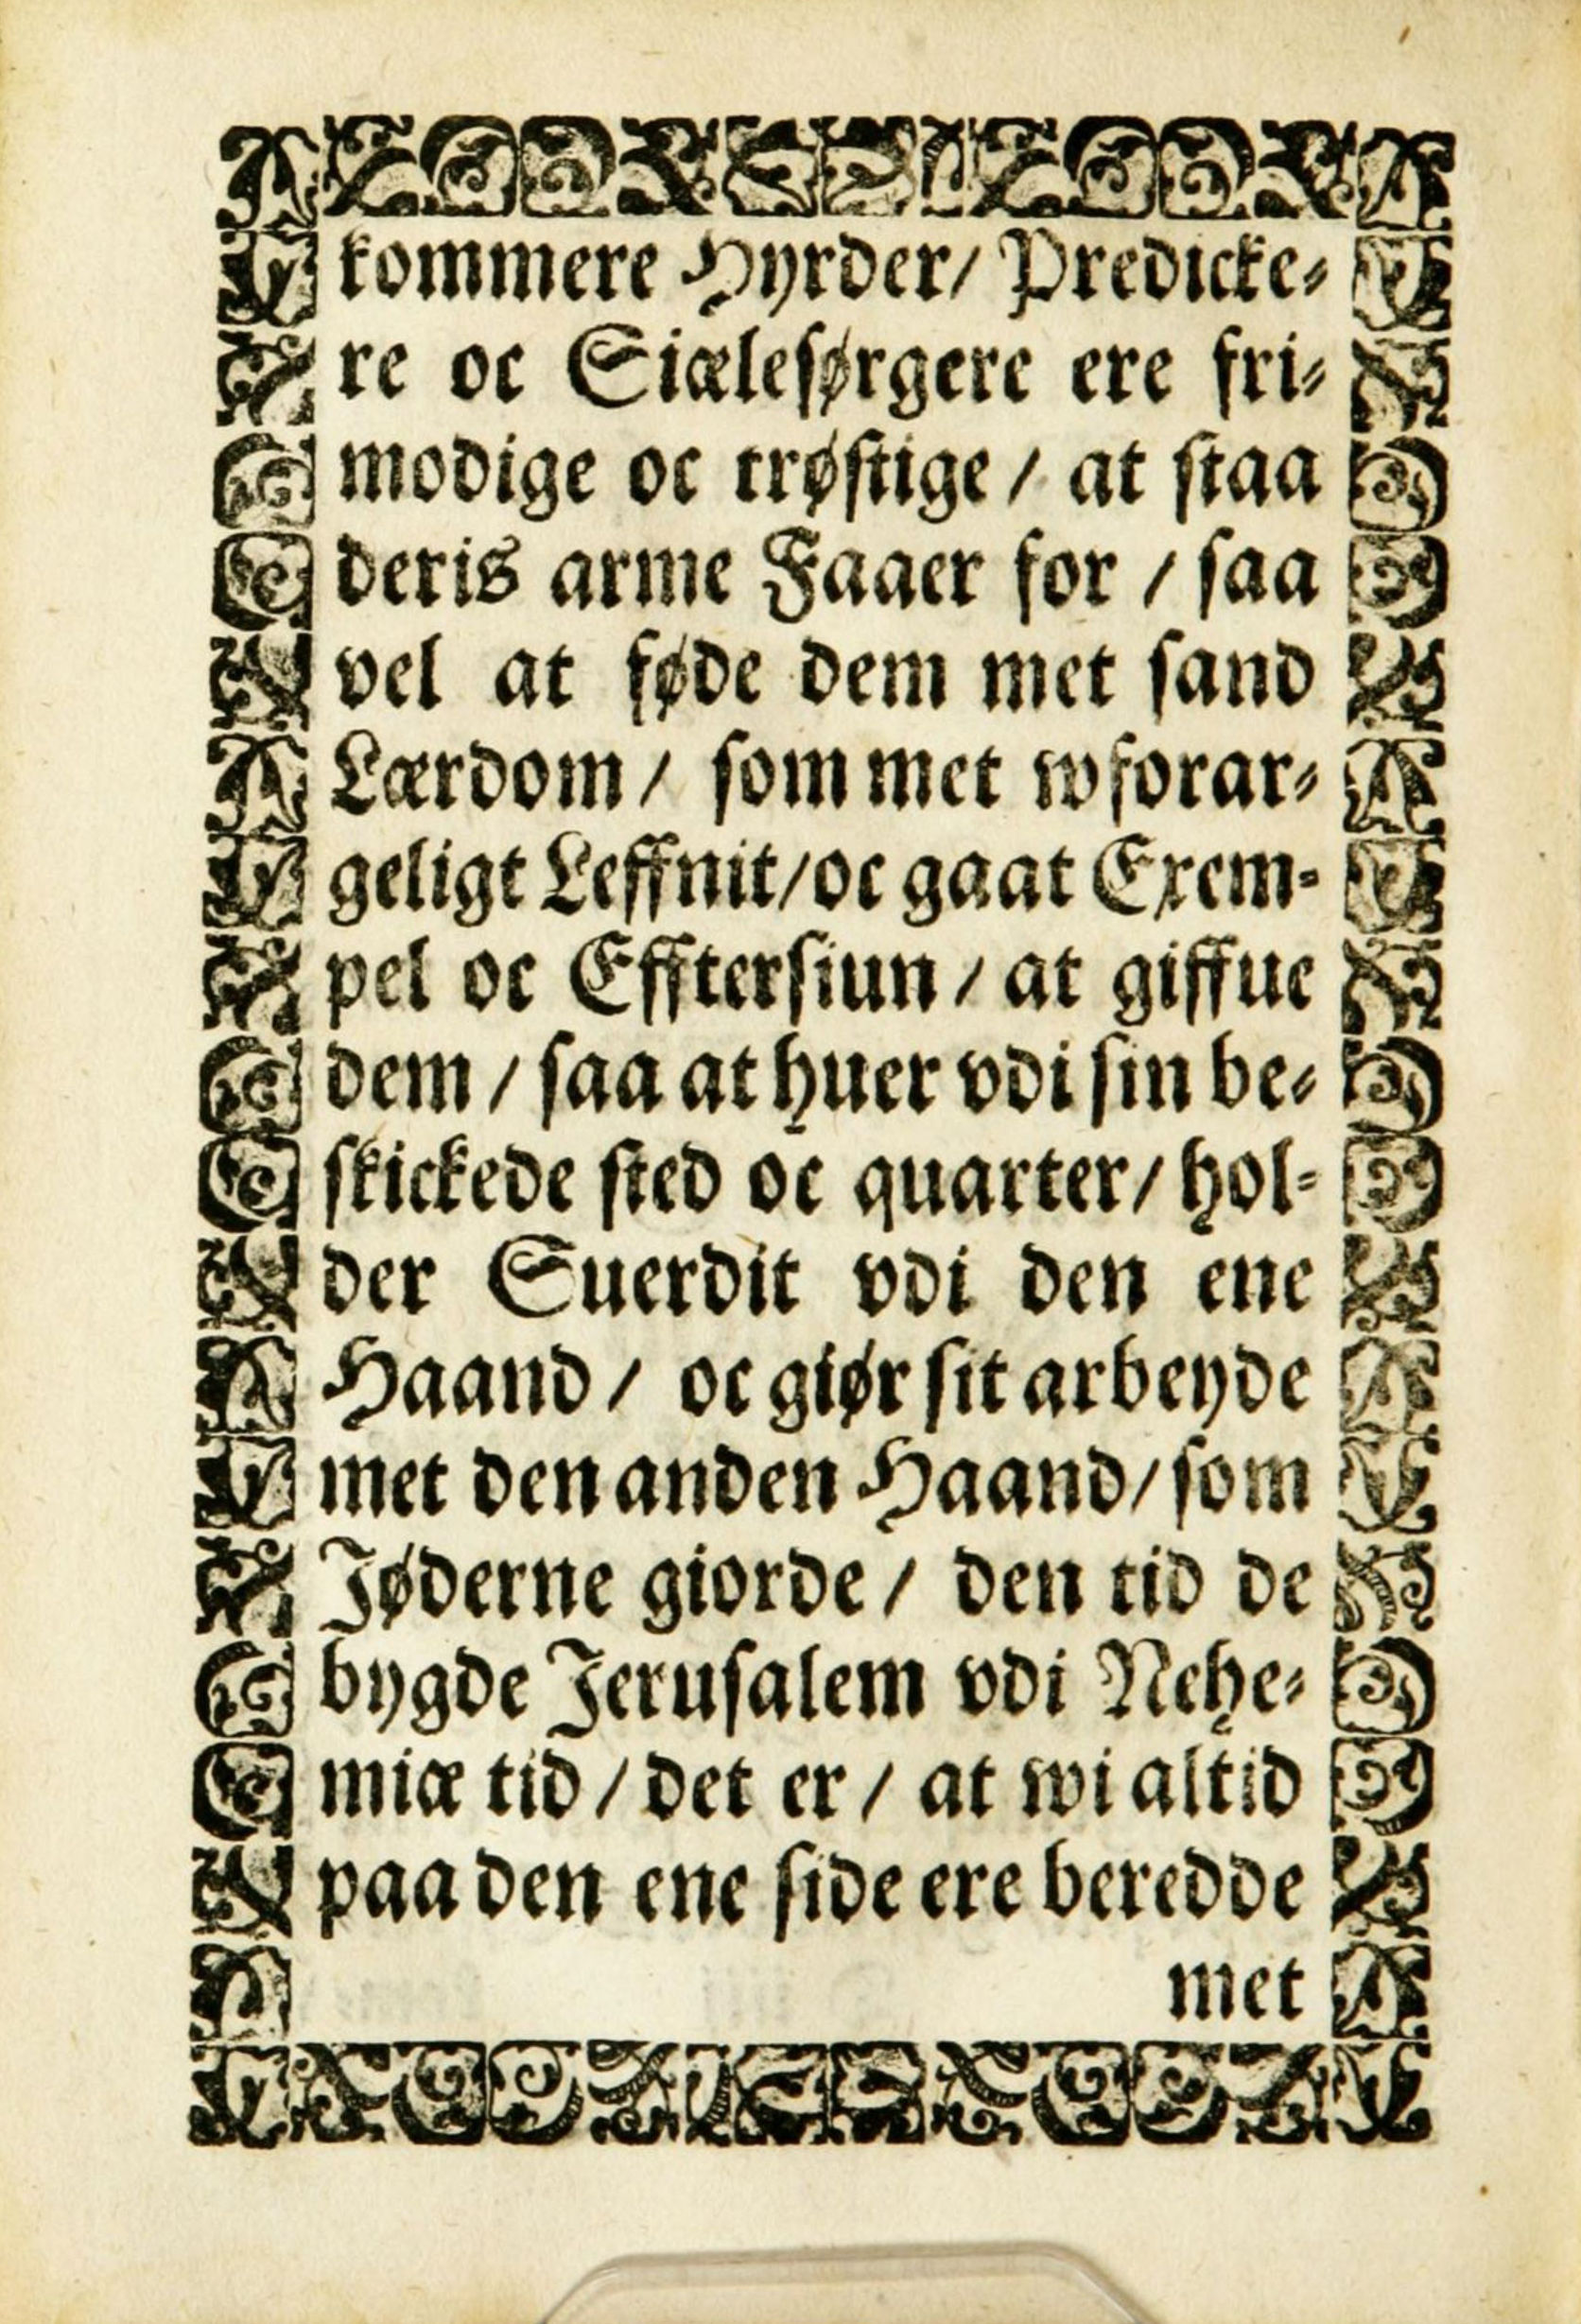 kommere Hyrder/ Predicke⸗
re oc Siælesørgere ere fri⸗
modige oc trøstige / at staa
deris arme Faaer for / saa
vel at føde dem met sand
Lærdom / som met wforar⸗
geligt Leffnit/oc gaat Exem⸗
pel oc Efftersiun / at giffue
dem / saa at huer vdi sin be⸗
skickede sted oc quarter/ hol⸗
der Suerdit vdi den ene
Haand / oc giør sit arbeyde
met den anden Haand/ som
Jøderne giorde / den tid de
bygde Jerusalem vdi Nehe⸗
miæ tid / det er / at wi altid
paa den ene side ere beredde
met